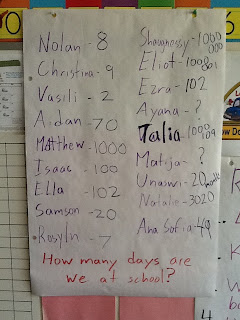 Nolan - 8
Christina - 9
Vasili - 2
Aidan - 70
Matthew - 1000
Isaac - 100
Ella - 102
Samson - 20
Rosyln - 7
1000
000
Eliot -
Ezra - 102
Ayana - ?
Talia - 1000
09
Matija - ?
20
Natalie - 3020
Ana Sofia - 49
How many days are
we at school?